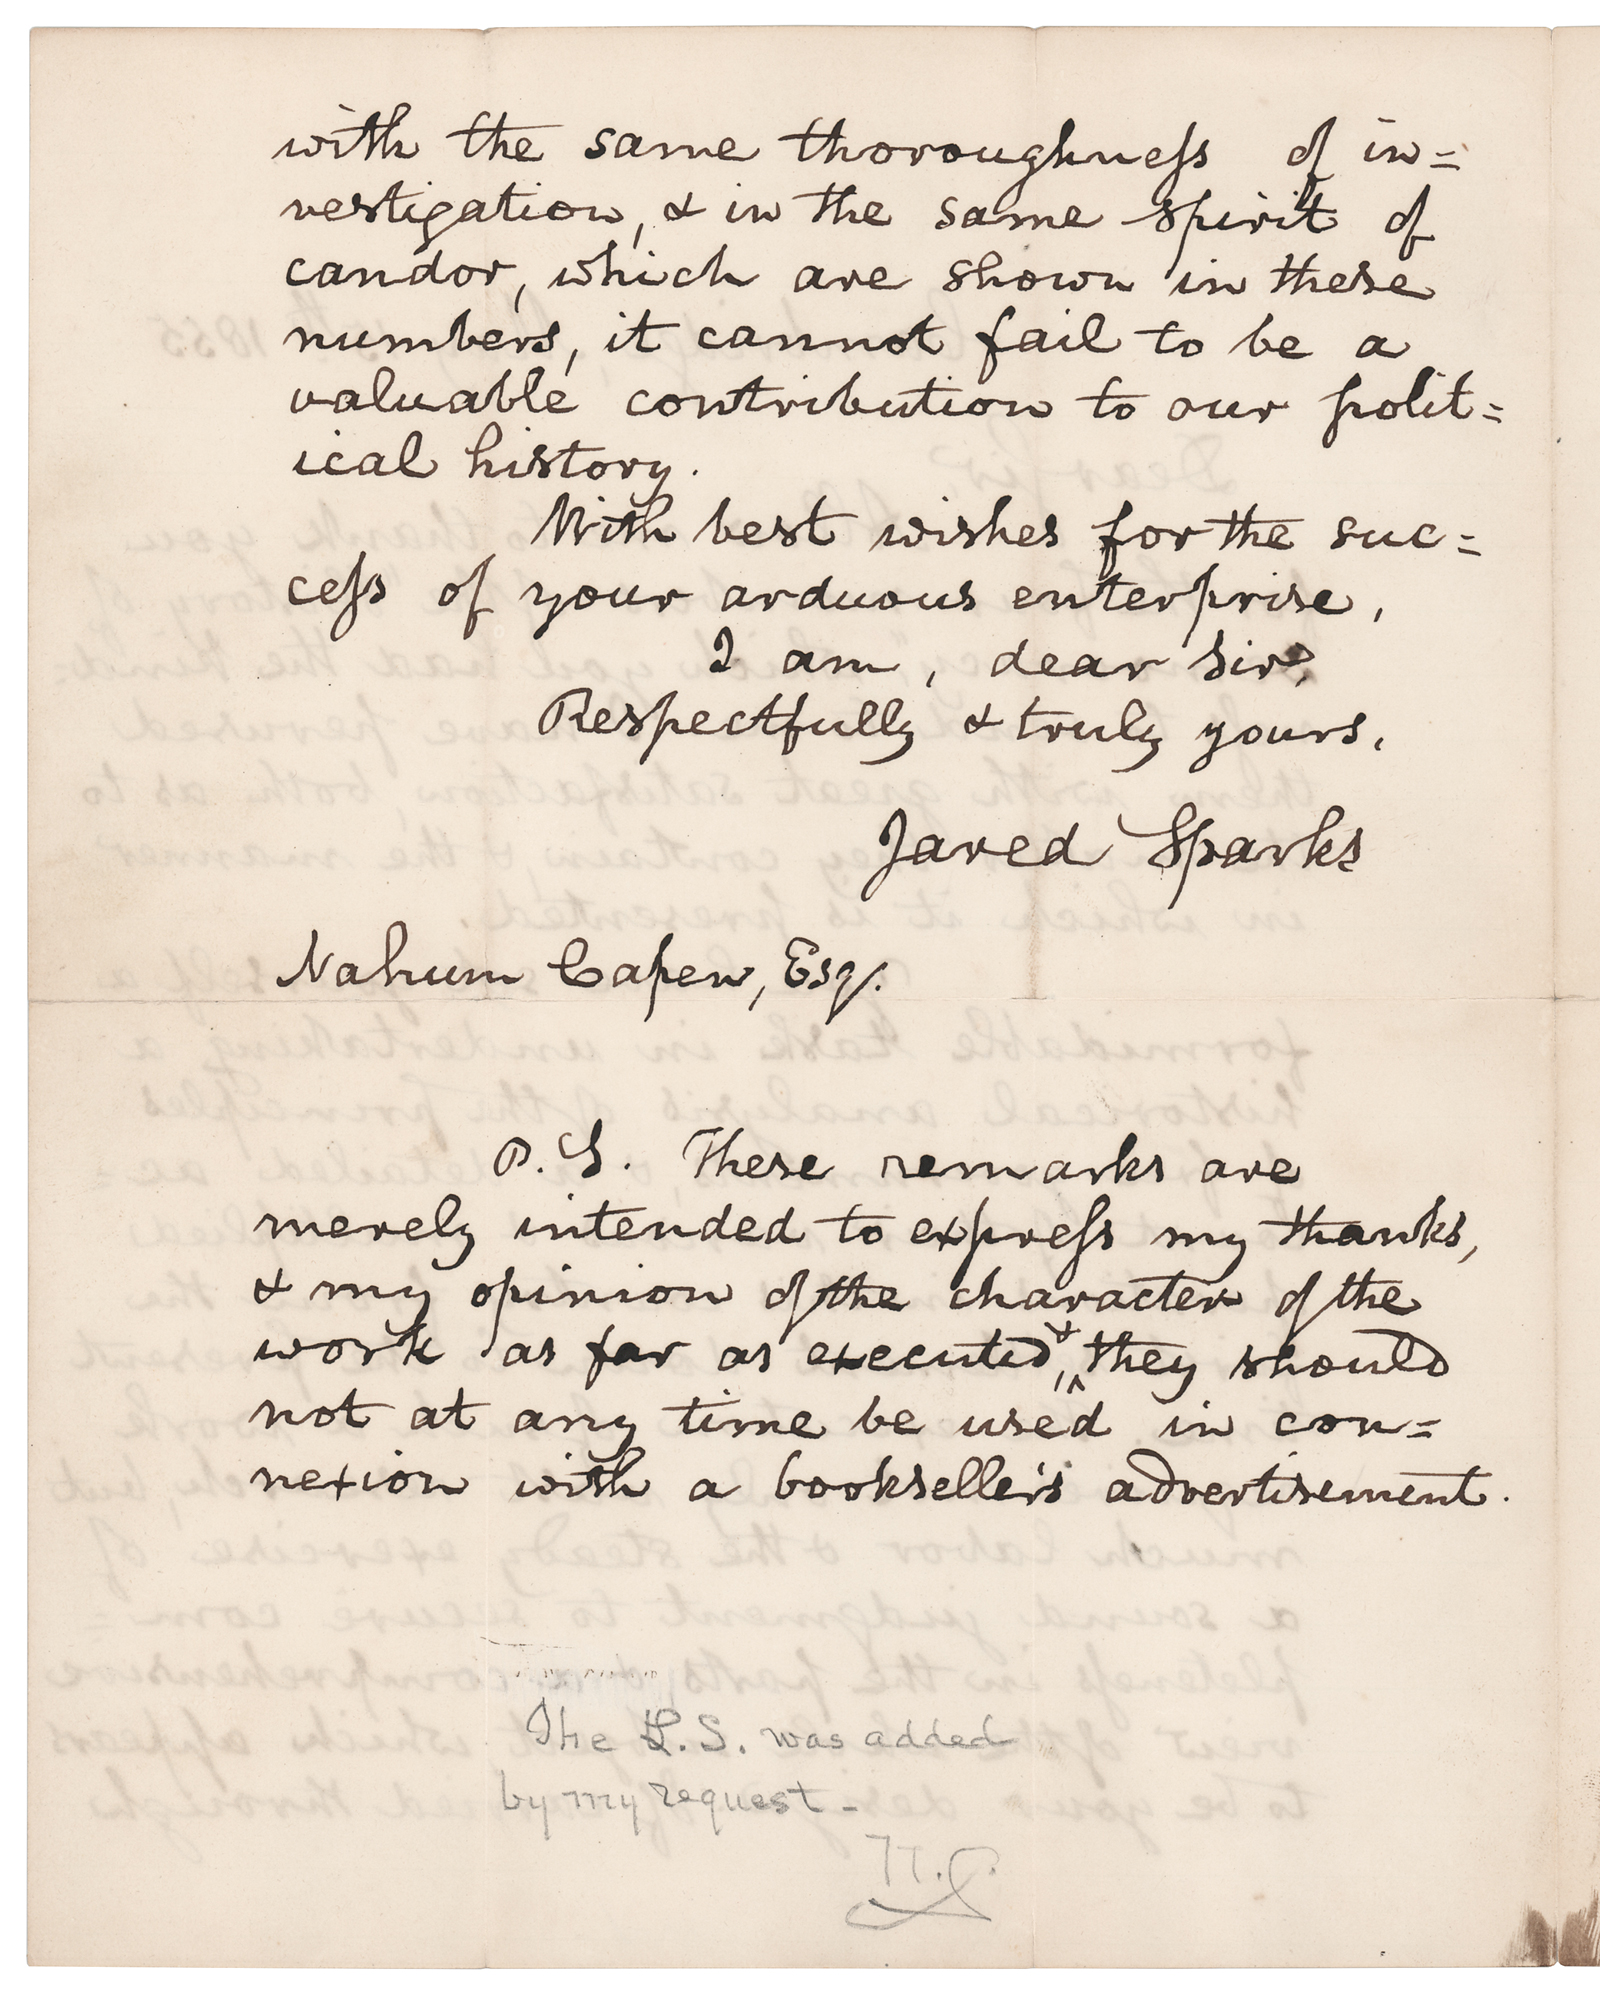 with the same thoroughness of in=
vestigation, & in the same spirit of
candor, which are shown in these
numbers, it cannot fail to be a
valuable contribution to our polit=
ical history.
With best wishes for the suc=
cess of your arduous enterprise,
I am, dear Sir,
Respectfully & truly yours,
Jared Sparks
Nahum Capen, Esq.
P.S. These remarks are
merely intended to express my thanks,
& my opinion of the character of the
work as far as executed, & they should
not at any time be used in con=
nexion with a bookseller's advertisement.
The P.S. was added
by my request -
N.C.